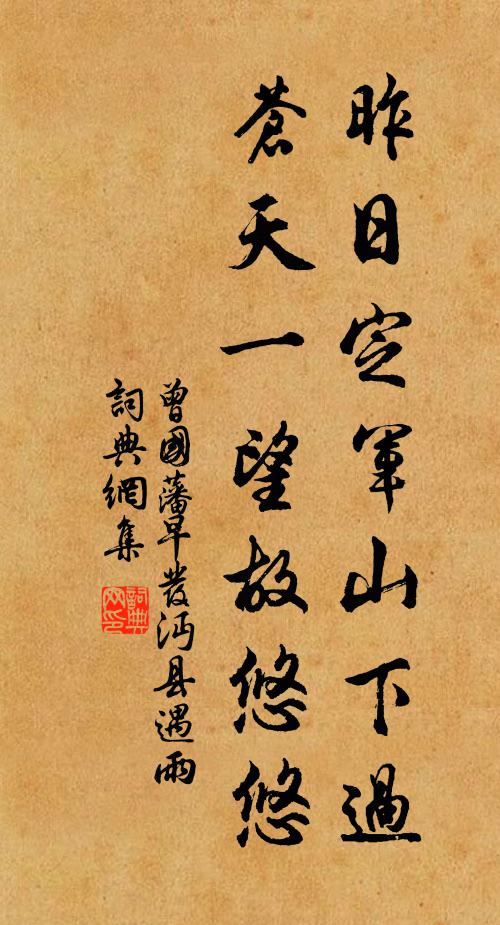 昨日定軍山下過
蒼天一望故悠悠
曾國藩早發沔县遇雨
詞典網集
詞典网印